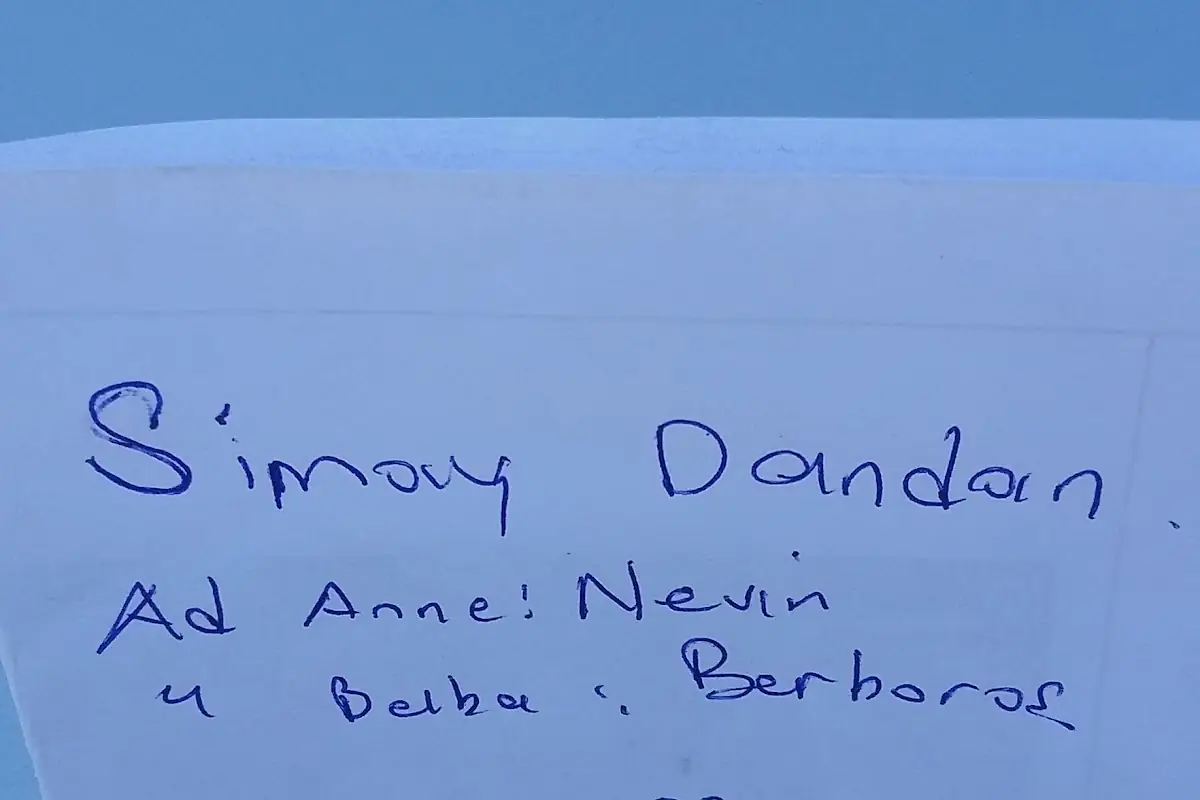 Simay Dandan
Ad Anne: Nevin
" Baba : Berbaros